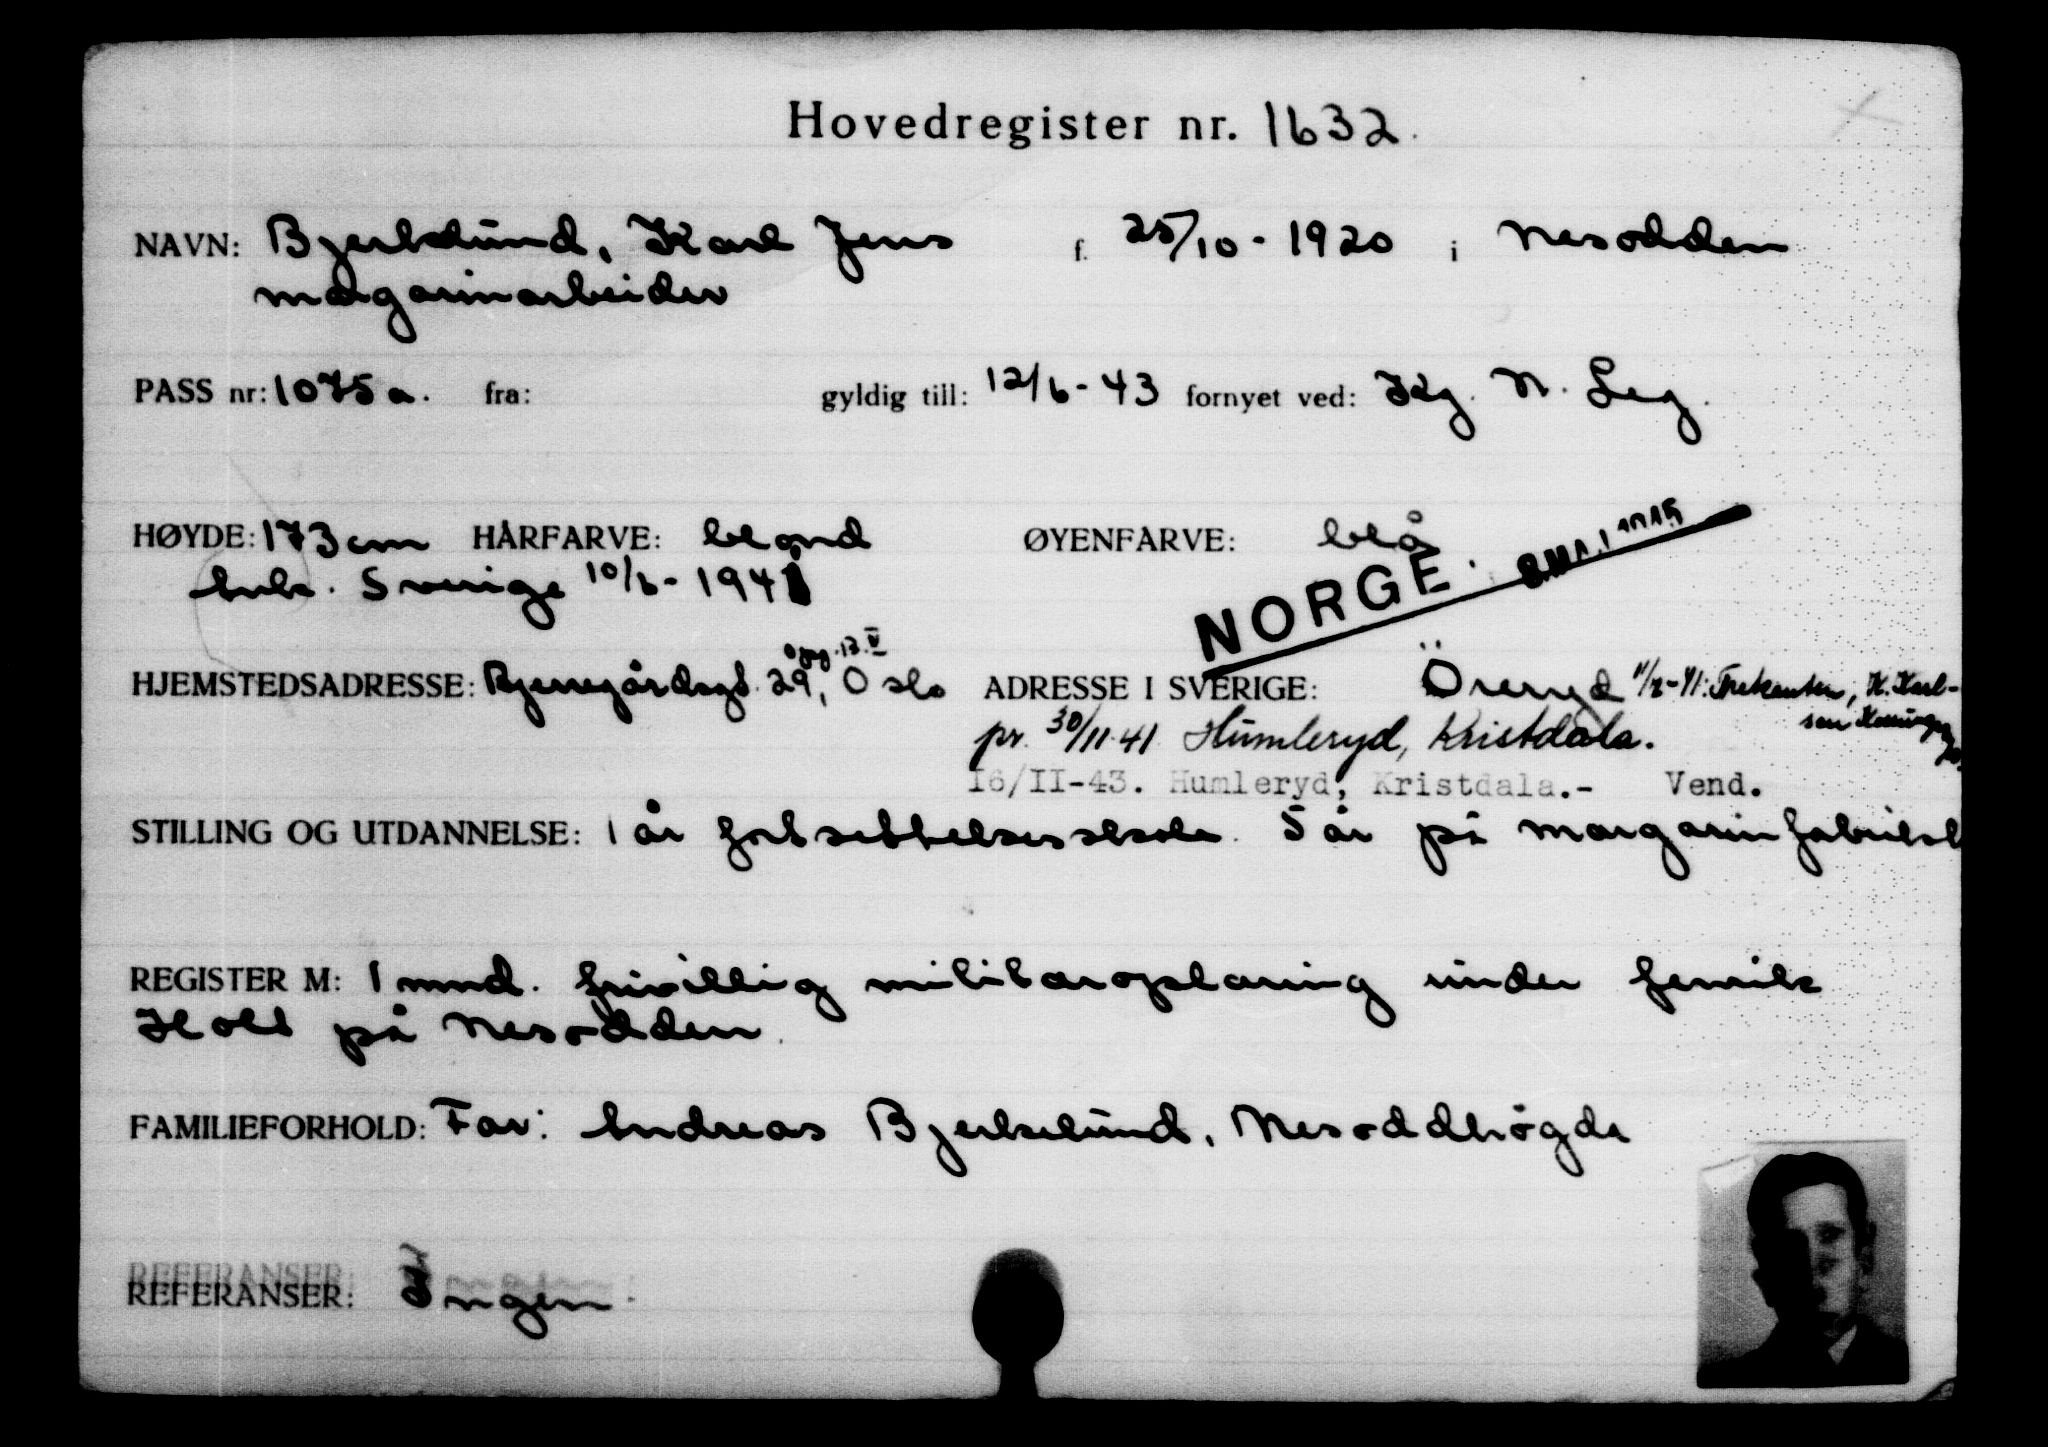 Hovedregister nr. 1632.
NAVN: Bjerkelund, Karl Jens f. 25/10-1920 i Nesodden
margarinarbeider
PASS nr: 1075a. fra: gyldig till: 12/6-43 fornyet ved: Kg. N. Leg.
HØYDE: 173 cm HÅRFARVE: blond ØYENFARVE: blå
Ank. Sverige 10/6-1941
NORGE. 8 MAJ 1945
Opg. 13. V
HJEMSTEDSADRESSE: Bjerregårdsgt. 29, Oslo ADRESSE I SVERIGE: Öreryd Trekanten, K. Karl-
son
pr. 30/11.41 Humleryd, Kristdala.
16/II-43. Humleryd, Kristdala.- Vend.
STILLING OG UTDANNELSE: 1 år fortsettelsesskole. 5 år på margarinfabrikk
REGISTER M: 1 mnd. frivillig militæropplæring under fenrik
Holt på Nesodden.
FAMILIEFORHOLD: Far: Andreas Bjerkelund, Nesoddhögda
REFERANSER:
REFERANSER: Ingen.